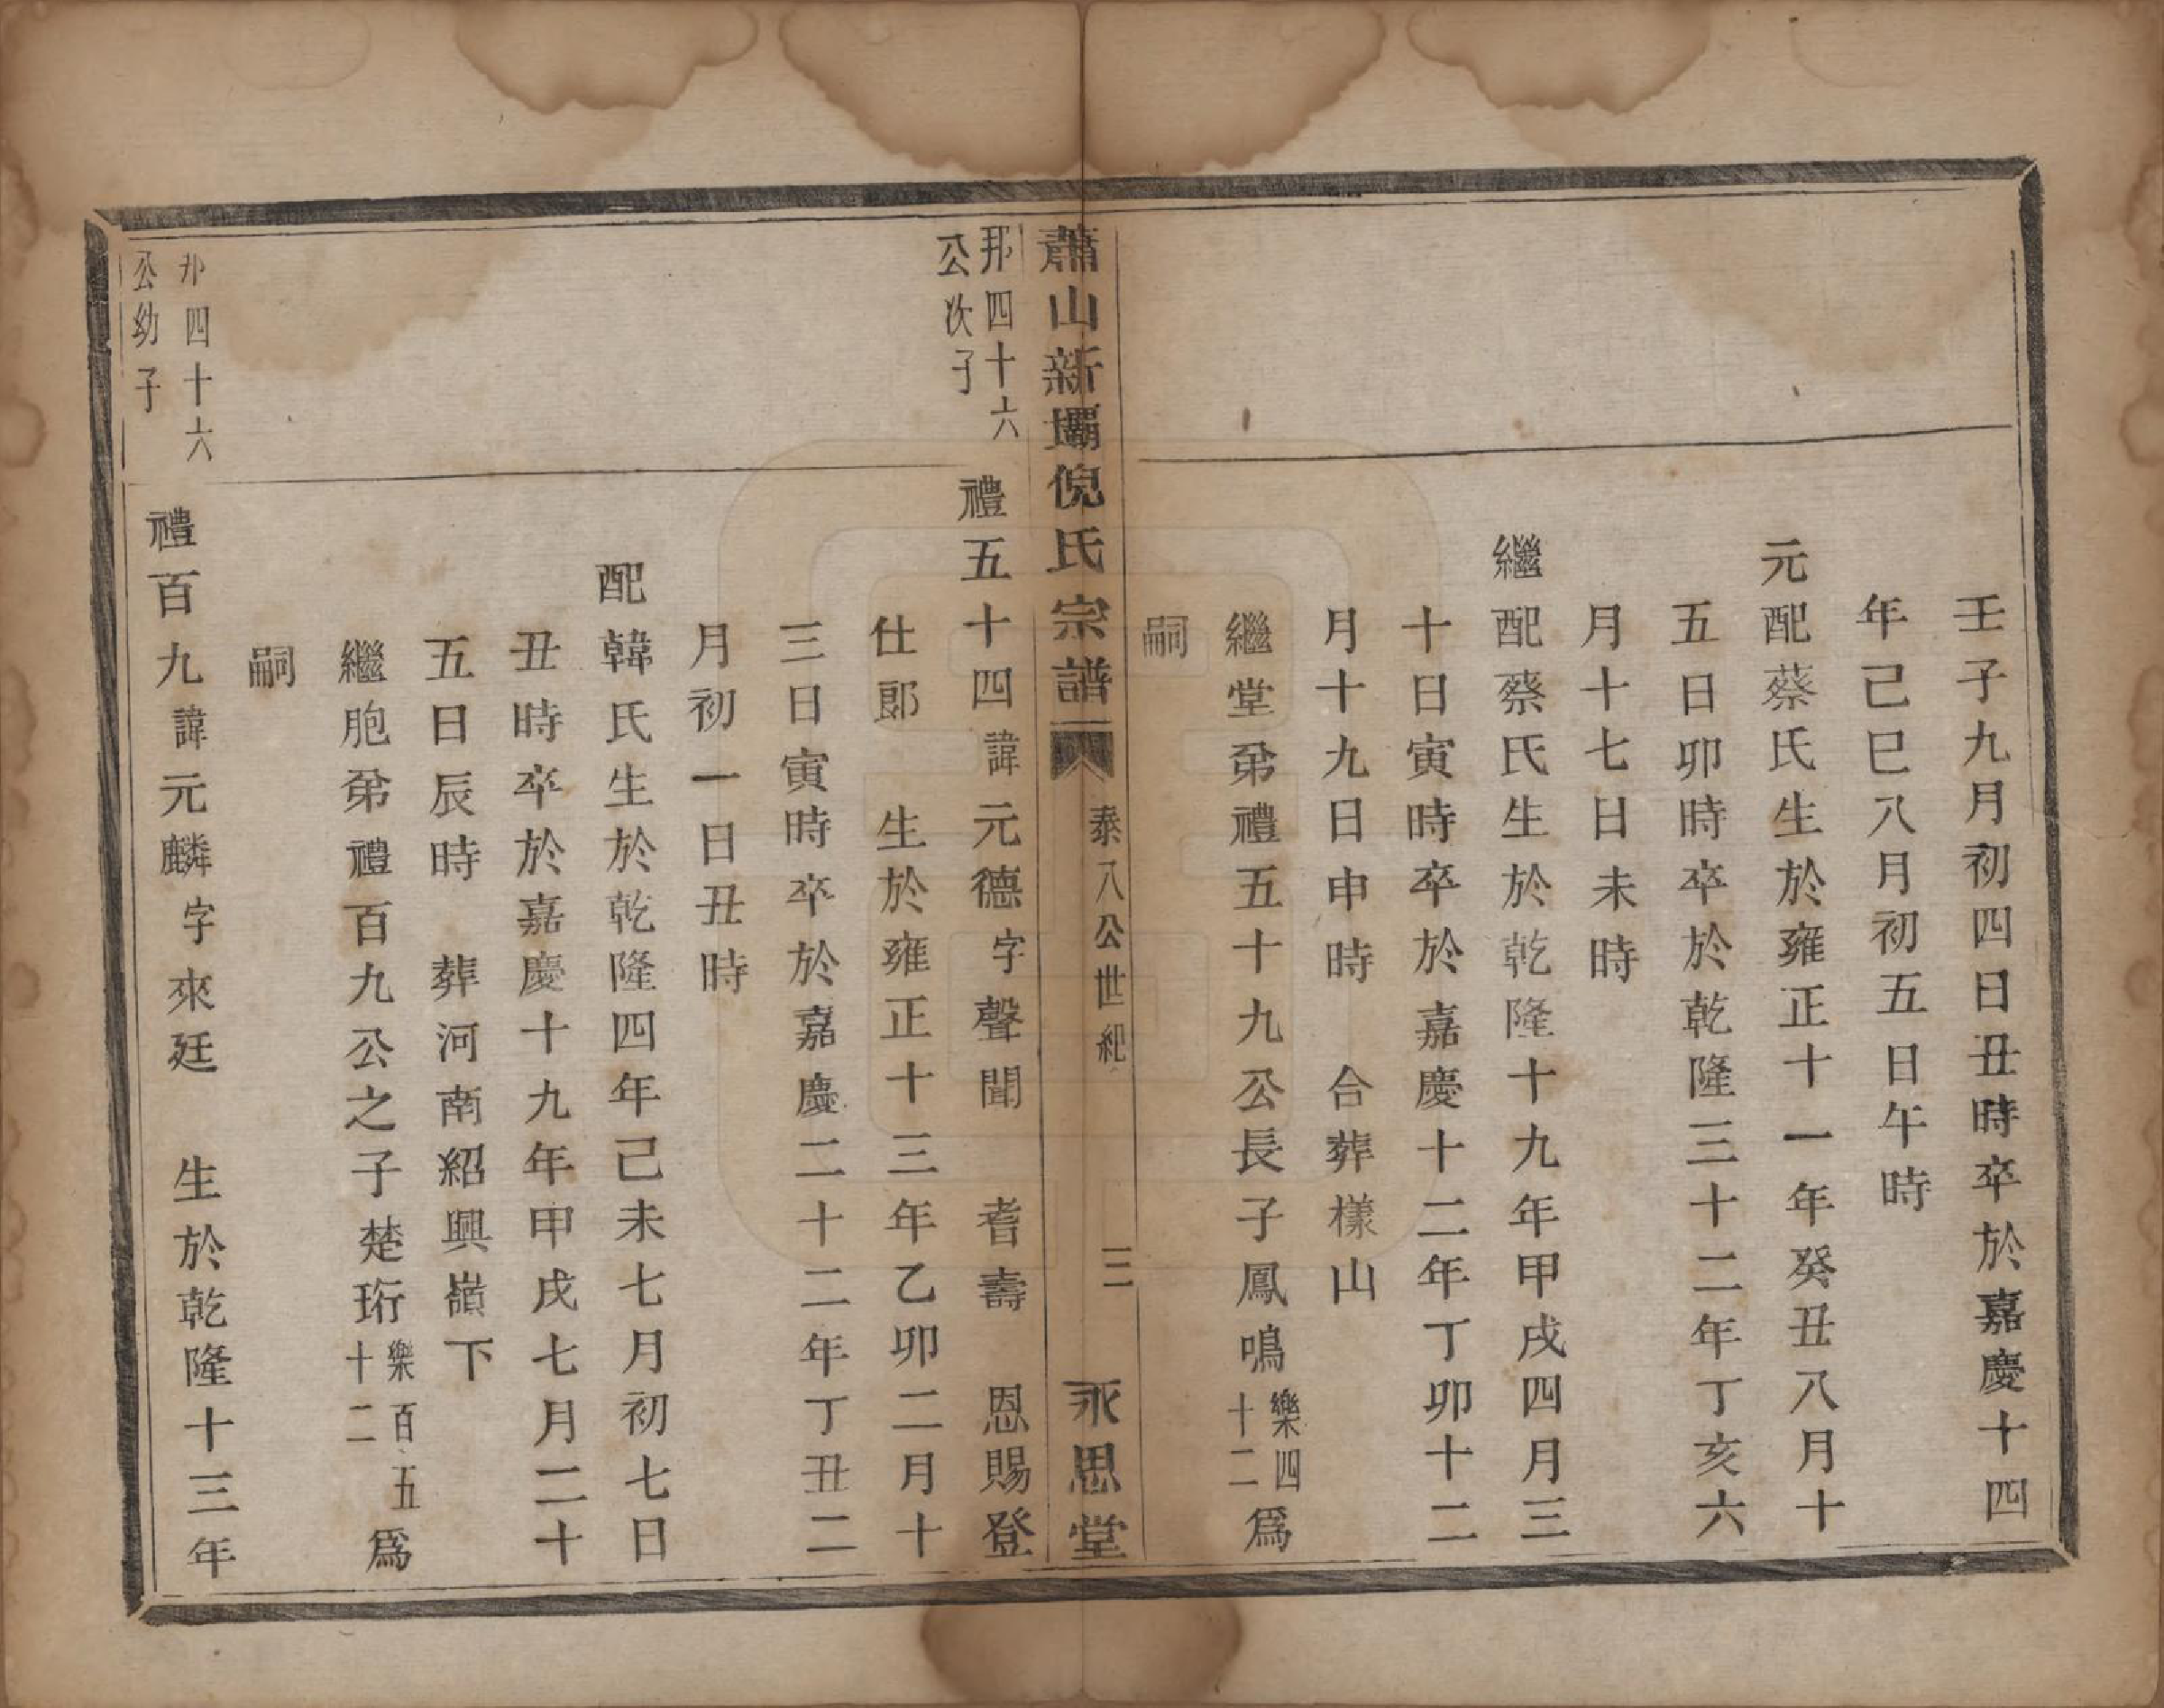 壬子九月初四日丑時卒於嘉慶十四
年己巳八月初五日午時
元配蔡氏生於雍正十一年癸丑八月十
五日卯時卒於乾隆三十二年丁亥六
月十七日未時
繼配蔡氏生於乾隆十九年甲戌四月三
十日寅時卒於嘉慶十二年丁卯十二
月十九日申時　合葬樣山
繼堂弟禮五十九公長子鳳鳴樂四十二爲
嗣
蕭山新壩倪氏宗譜　泰八公世紀　三　永思堂
邦四十六
公次子
禮五十四諱元德字聲聞　耆壽　恩賜登
仕郎　生於雍正十三年乙卯二月十
三日寅時卒於嘉慶二十二年丁丑二
月初一日丑時
配韓氏生於乾隆四年己未七月初七日
丑時卒於嘉慶十九年甲戌七月二十
五日辰時　葬河南紹興嶺下
繼胞弟禮百九公之子楚珩樂百五十二爲
嗣
邦四十六
公幼子
禮百九諱元麟字來廷　生於乾隆十三年